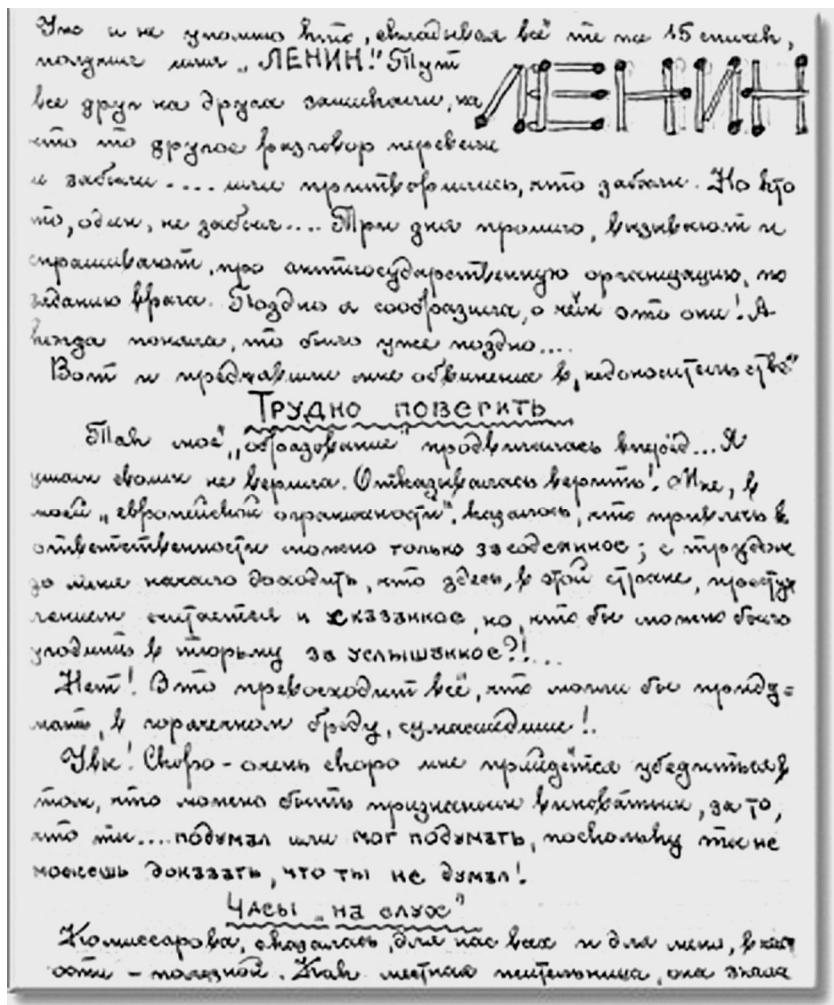 Уж и не упомню кто, складывая всё те же 15 спичек,
получил имя „ЛЕНИН!" Тут
ЛЕНИН
все друг на друга зашикали, на
что то другое разговор перевели
и забыли.... или притворились, что забыли. Но кто
то, один, не забыл.... Три дня прошло, вызывают и
спрашивают, про антигосударственную организацию, по
заданию врага. Поздно я сообразила, о чём это они! А
когда поняла, то было уже поздно....
Вот и предъявили мне обвинение в „недоносительстве"
ТРУДНО ПОВЕРИТЬ
Так моё „образование" продвигалась вперёд... Я
ушам своим не верила. Отказывалась верить! Мне, в
моей „европейской ограниченности", казалось, что привлечь к
ответственности можно только за содеянное; с трудом
до меня начало доходить, что здесь, в этой стране, преступ
лением считается и сказанное, но, кто бы можно было
угодить в тюрьму за услышанное?!...
Нет! Это превосходит всё, что могли бы приду=
мать, в горячечном бреду, сумасшедшие!.
Увы! Скоро - очень скоро мне прийдётся убедиться в
том, что можно быть признанным виноватым, за то,
что ты.... подумал или мог подумать, поскольку ты не
можешь доказать, что ты не думал!
ЧАСЫ „НА СЛУХ"
Комиссарова, оказалась, для нас всех и для меня, в част
ости - полезной. Как местная жительница, она знала